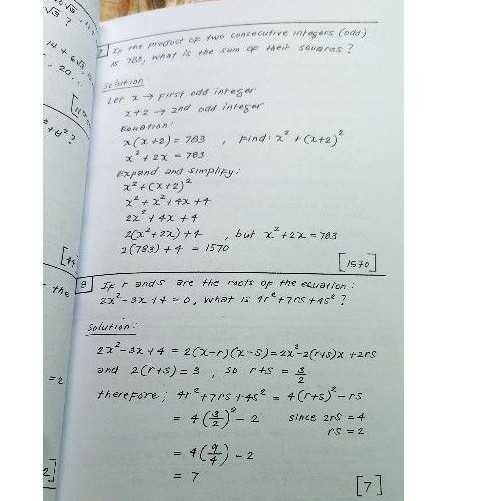 √3 ?
14 + 6√3
20
7 If the product of two consecutive integers (odd)
is 783, what is the sum of their squares ?
Solution
Let x → first odd integer
x+2 → 2nd odd integer
Equation:
x(x+2) = 783 , Find: x² + (x+2)²
x² + 2x = 783
Expand and simplify:
x² + (x+2)²
x² + x² + 4x + 4
2x² + 4x + 4
2(x²+2x) + 4 , but x²+2x = 783
2(783) + 4 = 1570
[1570]
the
8 If r and s are the roots of the equation :
2x²-3x+4=0, what is 4r²+7rs+4s² ?
Solution:
2x²-3x+4 = 2(x-r)(x-s)=2x²-2(r+s)x +2rs
= 2
and 2(r+s) = 3 , so r+s = 3/2
therefore; 4r²+7rs+4s² = 4(r+s)²-rs
= 4(3/2)² - 2 since 2rs = 4
rs = 2
= 4(9/4) - 2
= 7
2]
[7]